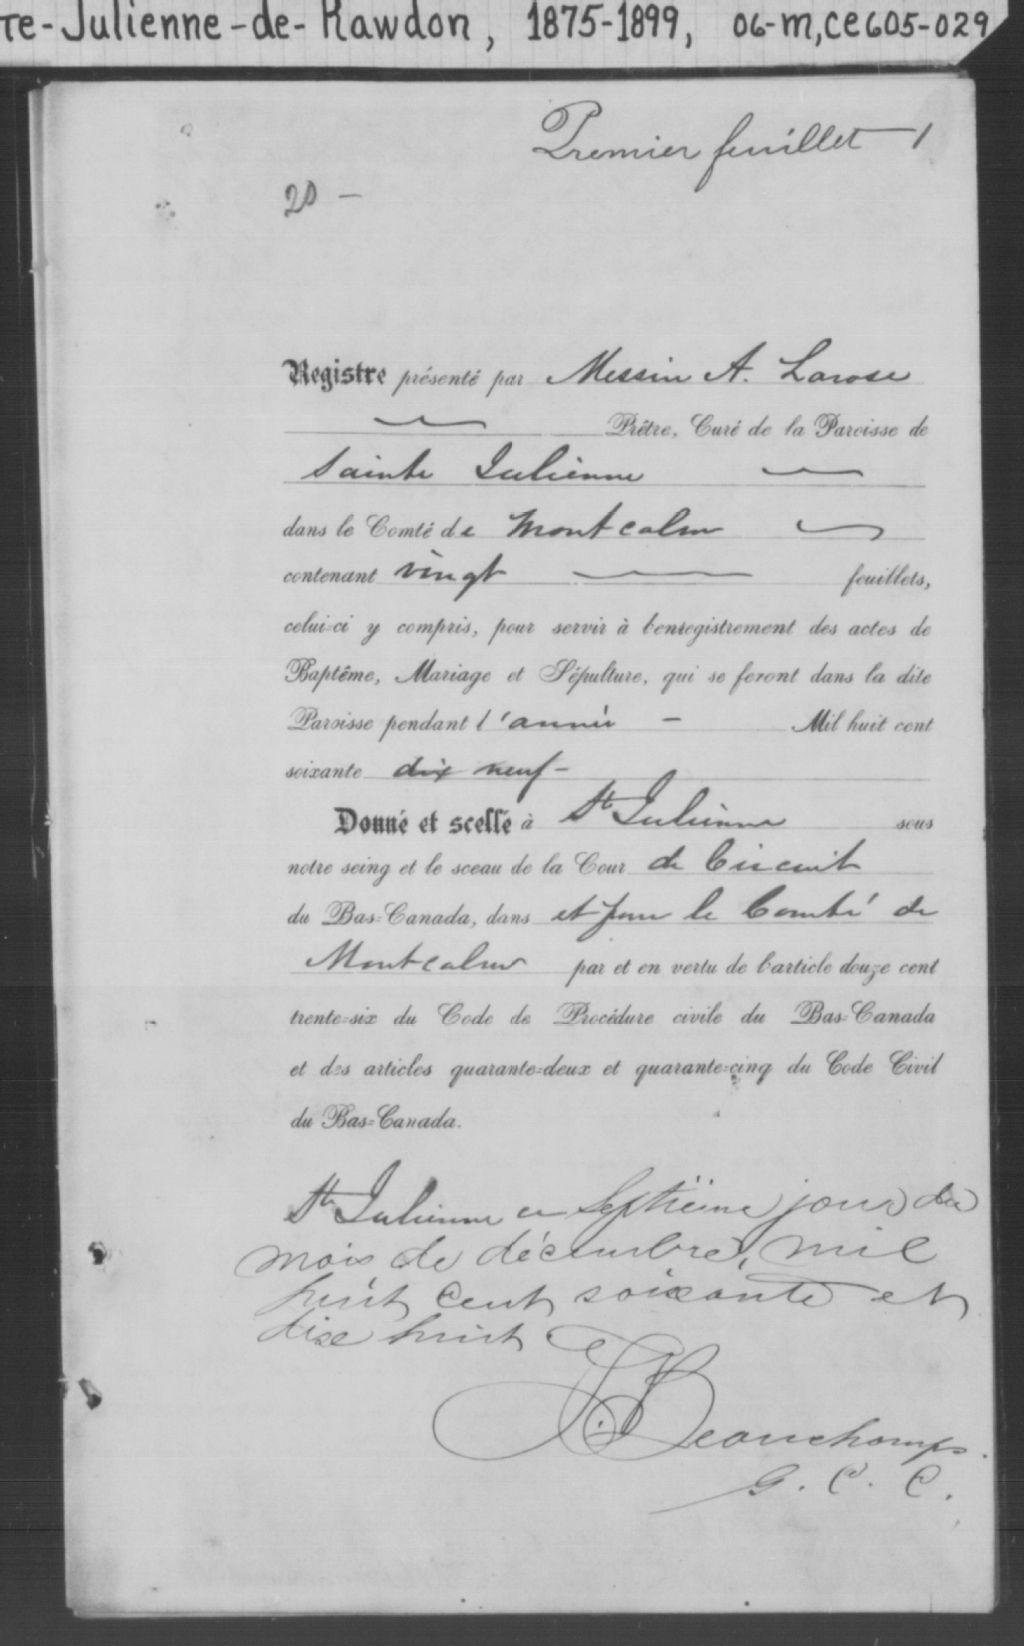 te-Julienne-de-Rawdon, 1875-1899, 06-M,CE605-029
Premier feuillet 1
20 —
Registre présenté par Messire A. Larose
Prêtre, Curé de la Paroisse de
Sainte Julienne
dans le Comté de Montcalm
contenant vingt — feuillets,
celui-ci y compris, pour servir à l'enregistrement des actes de
Baptême, Mariage et Sépulture, qui se feront dans la dite
Paroisse pendant l'année — Mil huit cent
soixante dix neuf —
Donné et scellé à Ste Julienne sous
notre seing et le sceau de la Cour de Circuit
du Bas-Canada, dans et pour le Comté de
Montcalm par et en vertu de l'article douze cent
trente-six du Code de Procédure civile du Bas-Canada
et des articles quarante-deux et quarante-cinq du Code Civil
du Bas-Canada.
Ste Julienne ce Septième jour du
mois de décembre, mil
huit cent soixante et
dix huit
Beauchamp
G. C. C.